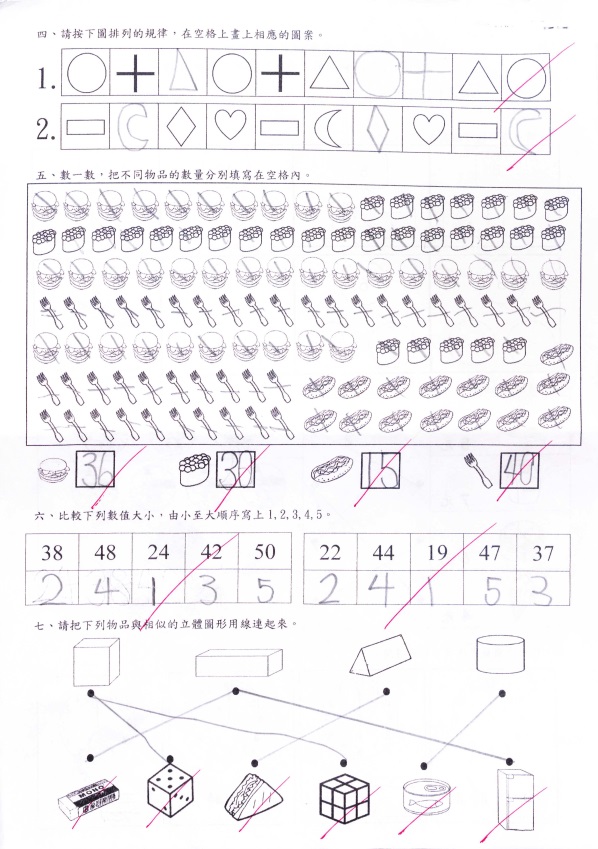 四、請按下圖排列的規律，在空格上畫上相應的圖案。
1.
2.
五、數一數，把不同物品的數量分別填寫在空格內。
36 30 15 40
六、比較下列數值大小，由小至大順序寫上1,2,3,4,5。
38 48 24 42 50 22 44 19 47 37
2 4 1 3 5 2 4 1 5 3
七、請把下列物品與相似的立體圖形用線連起來。
MONO